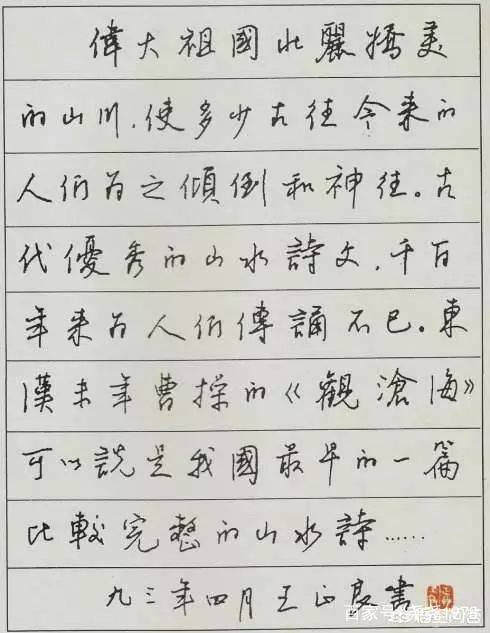 偉大祖國壯麗嬌美
的山川，使多少古往今来的
人们为之傾倒和神往。古
代優秀的山水詩文，千百
年来为人们傳誦不已。東
漢末年曹操的《觀滄海》
可以説是我國最早的一篇
比較完整的山水詩……
九三年四月王正良書
百家号/